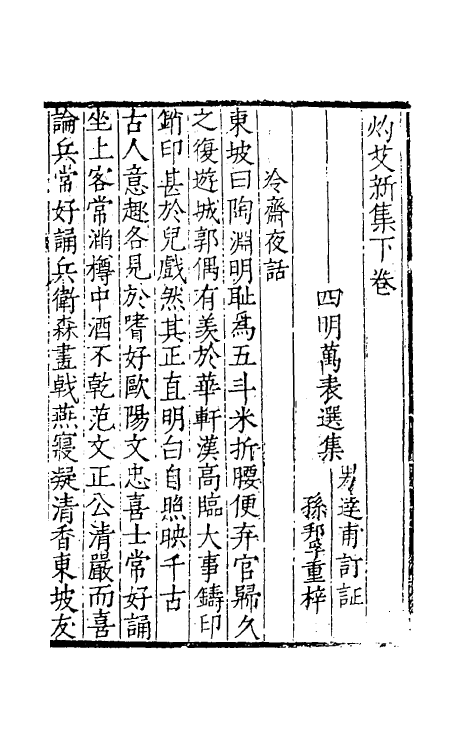 灼艾新集下卷
四明萬表選集
男達甫訂証
孫邦孚重梓
冷齋夜話
東坡曰陶淵明耻爲五斗米折腰便弃官歸久
之復遊城郭偶有羡於華軒漢高臨大事鑄印
銷印甚於兒戲然其正直明白自照映千古
古人意趣各見於嗜好歐陽文忠喜士常好誦
坐上客常滿樽中酒不乾范文正公清嚴而喜
論兵常好誦兵衛森畫戟燕寢凝清香東坡友